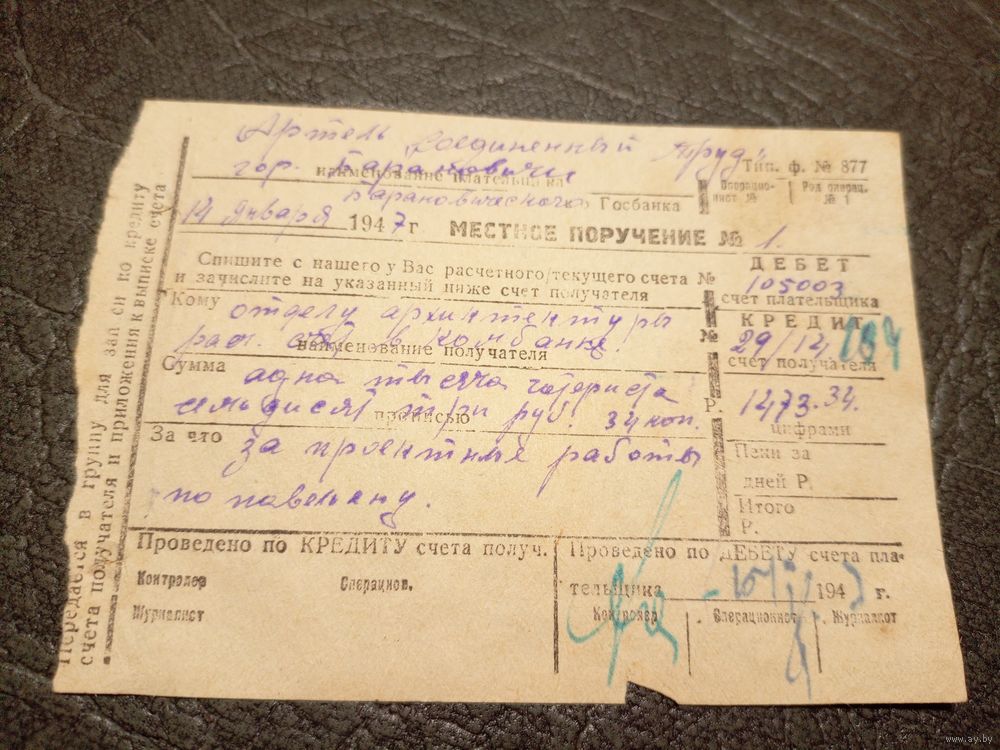 Передается в группу для зап си по кредиту
счета получателя и приложения к выписке счета
Артель „Соединенный труд"
гор. Барановичи
наименование плательщика
Тип. ф. № 877
Барановического
Госбанка
Операцио-
нист №
Род операц.
№ 1
14 Января 1947 г МЕСТНОЕ ПОРУЧЕНИЕ № 1.
Спишите с нашего у Вас расчетного/текущего счета №
и зачислите на указанный ниже счет получателя
ДЕБЕТ
105003
счет плательщика
Кому отделу архитектуры
рас. в Комбанке.
наименование получателя
КРЕДИТ
№ 29/14
счет получателя
Сумма адна тысяча четериста
семьдисят три руб. 34 коп.
прописью
Р. 1473.34.
цифрами
За что за проектные работы
по павельену.
Пени за
дней Р.
Итого
Р.
Проведено по КРЕДИТУ счета получ.
Контролер Операцион.
Журналист
Проведено по ДЕБЕТУ счета пла-
тельщика 1947 г.
Контролер Операционист Журналист
www.ay.by